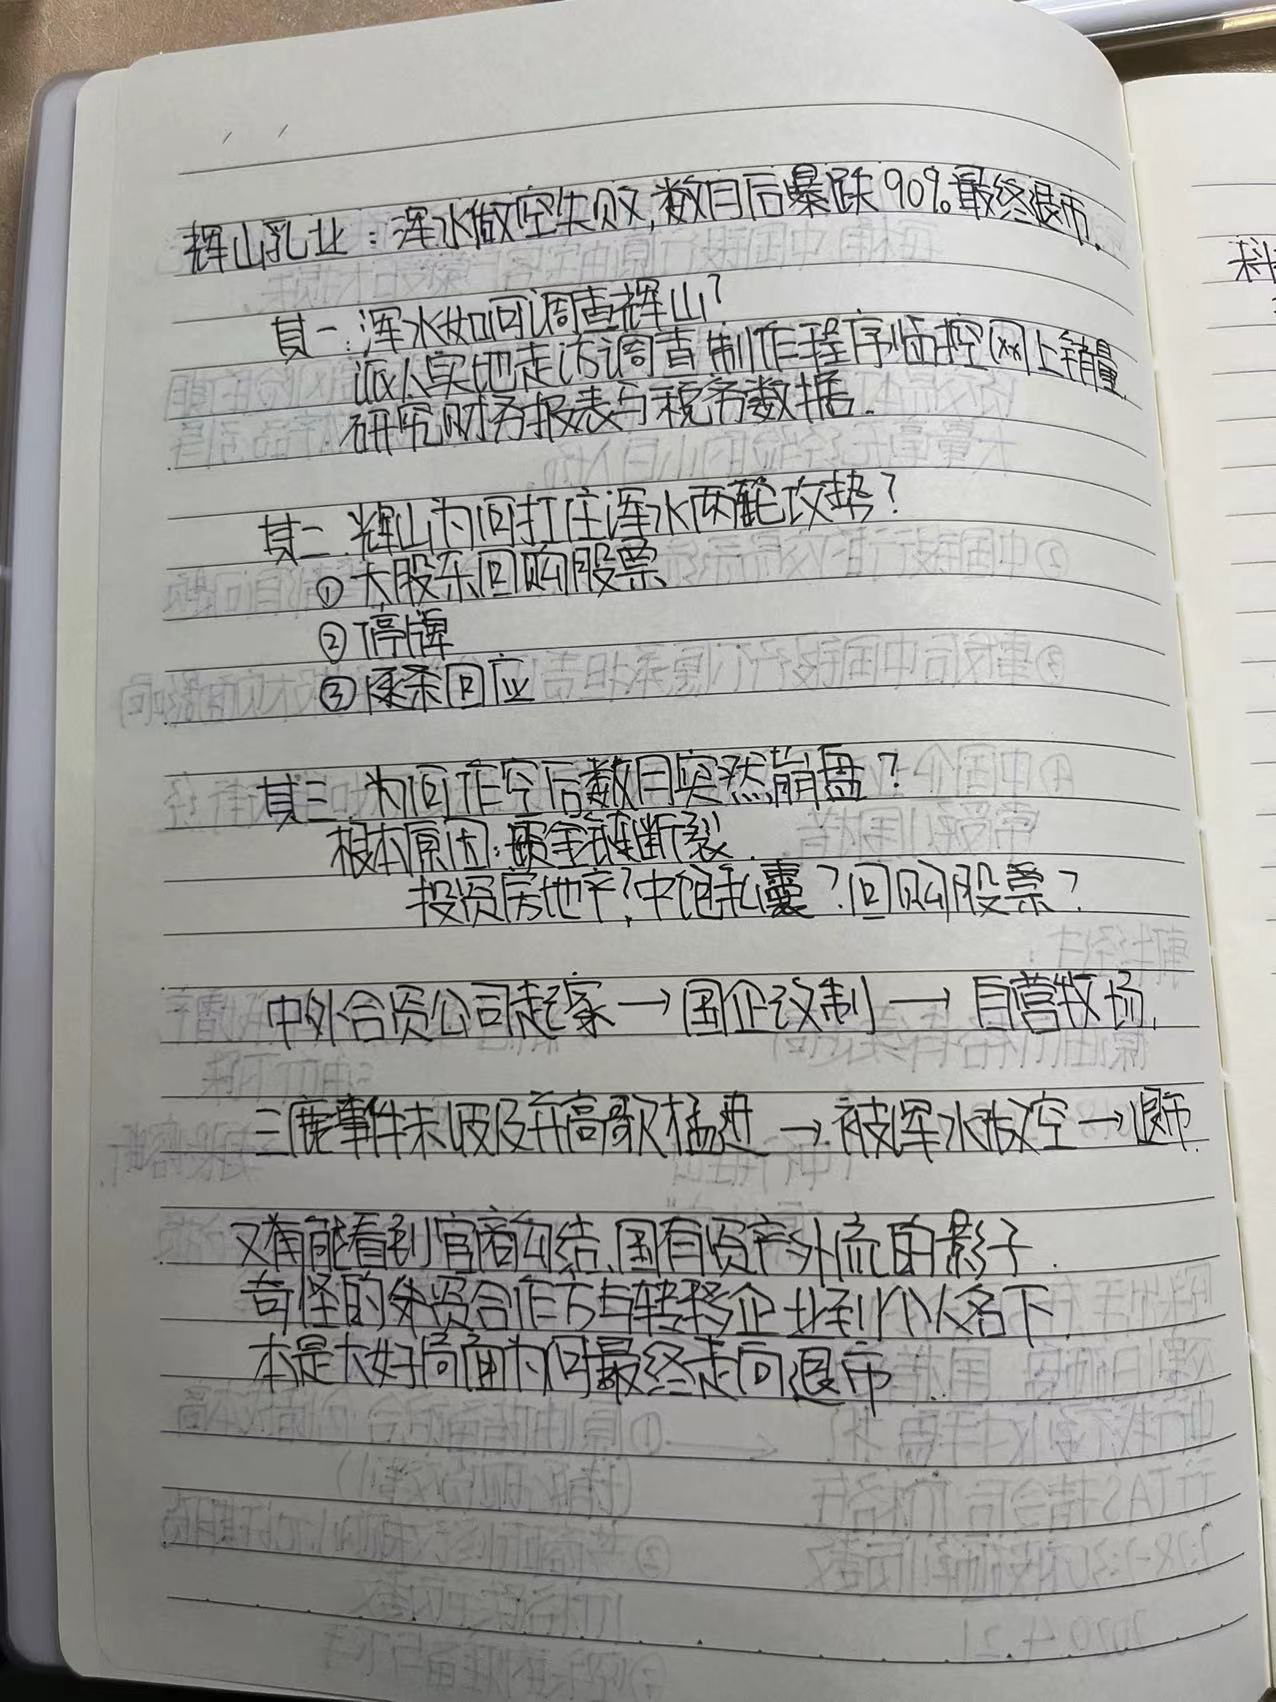 辉山乳业：浑水做空失败,数月后暴跌90%最终退市.
其一：浑水如何调查辉山？
派人实地走访调查制作程序监控网上销量
研究财务报表与税务数据.
其二 辉山为何打住浑水两轮攻势？
① 大股东回购股票
② 停牌
③ 逐条回应
其三 为何作空后数月突然崩盘？
根本原因：资金链断裂.
投资房地产？中饱私囊？回购股票？
中外合资公司起家→国企改制→自营牧场.
三鹿事件未波及并高歌猛进→被浑水做空→退市.
又有能看到官商勾结、国有资产外流的影子.
奇怪的外资合作方与转移企业到个人名下
本是大好局面为何最终走向退市